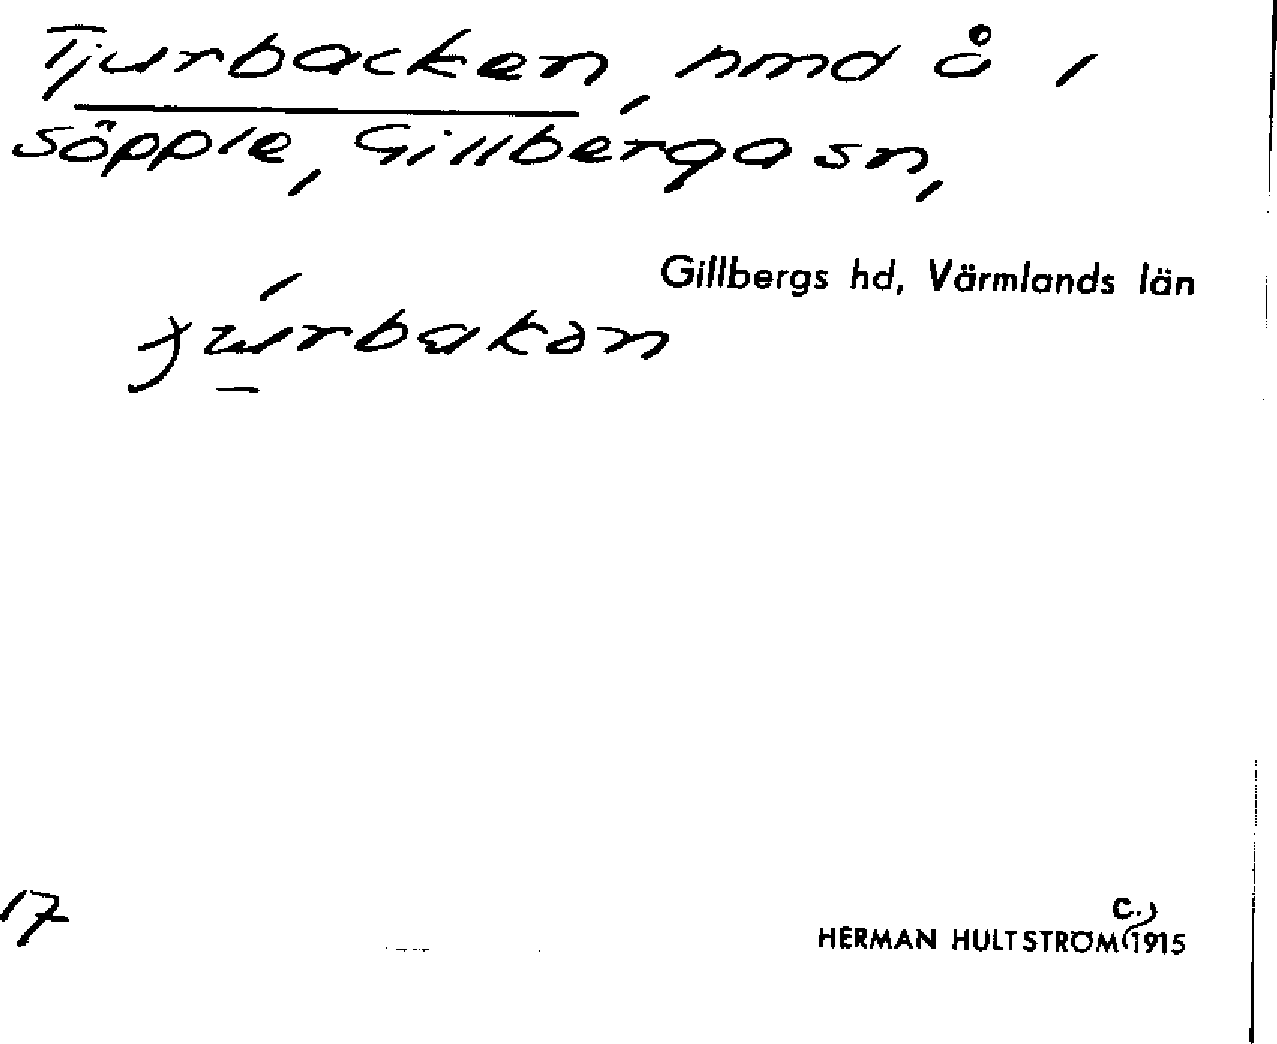 Tjurbacken, nmd å i
Söpple, Gillberga sn,
Gillbergs hd, Värmlands län
17
C.
HERMAN HULTSTRÖM 1915